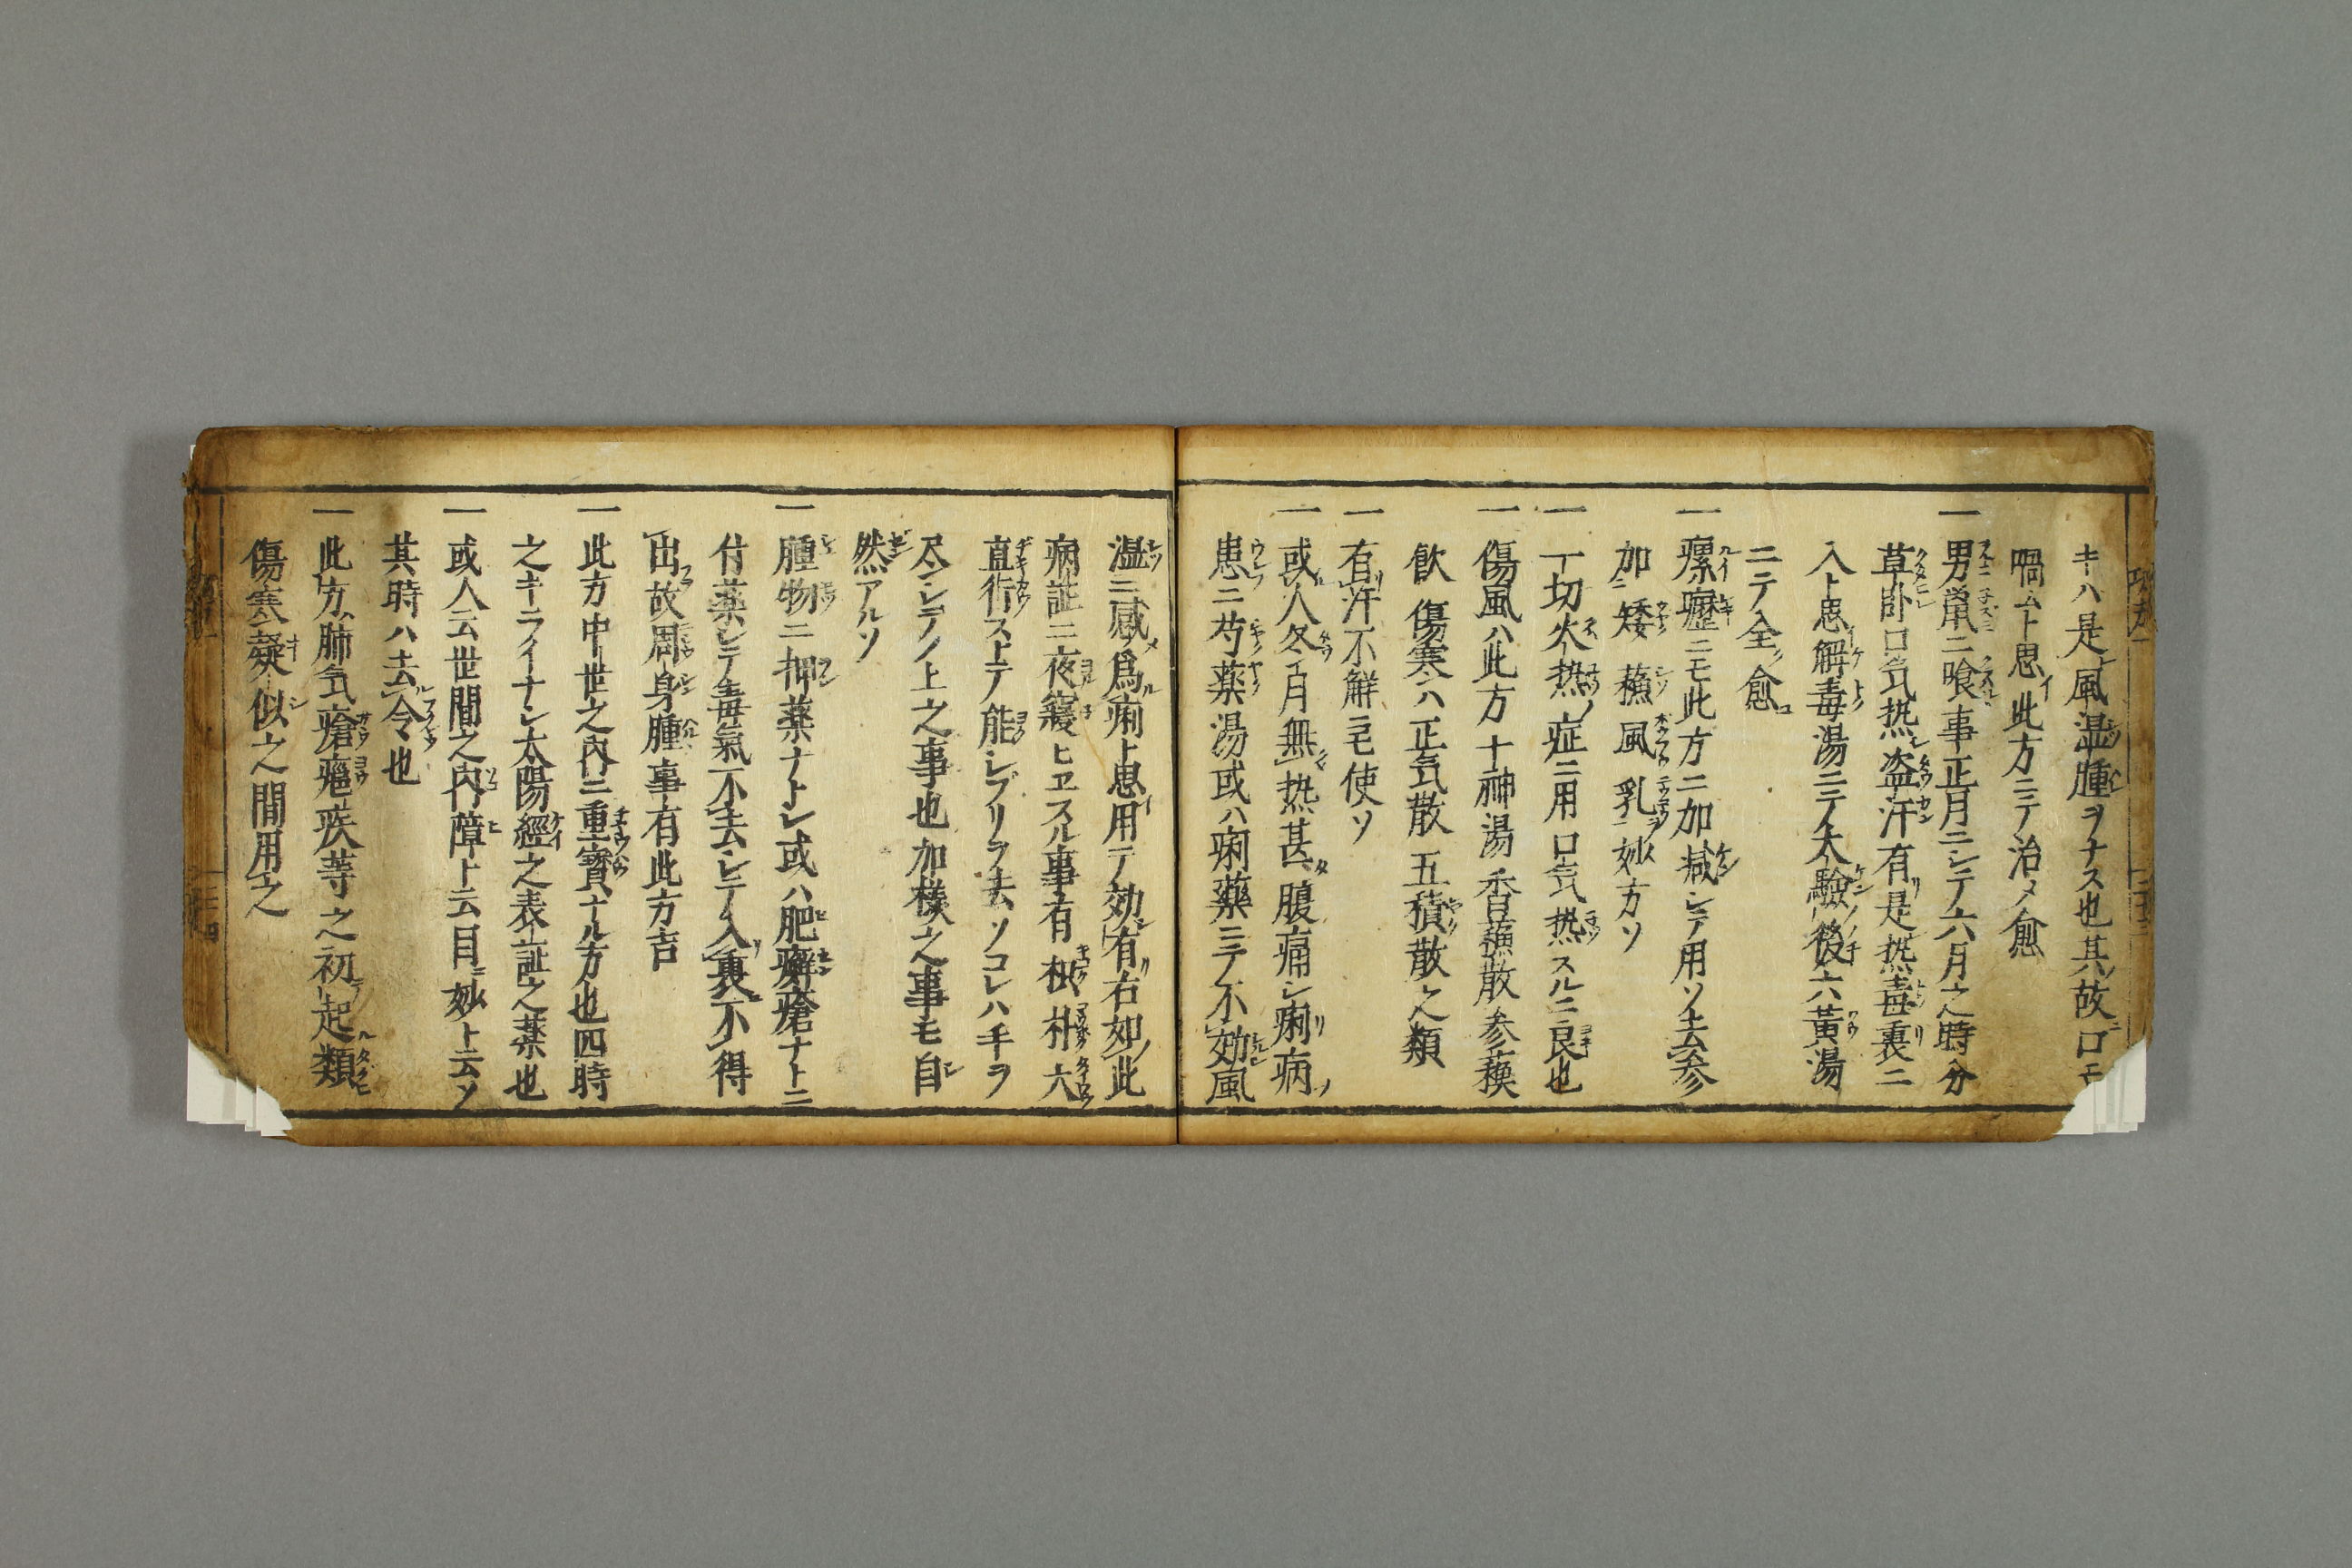 キハ是風湿腫ヲナス也其故口モ
喎ムト思此方ニテ治メ愈
一男鼠ニ喰事正月ニシテ六月之時分
草卧口気热盗汗有是热毒裏ニ
入ト思解毒湯ニテ大驗後六黄湯
ニテ全愈
一瘰癧ニモ此方ニ加減シテ用ソ去参
加矮蘓風乳妙方ソ
一一切火热ノ症ニ用口気热スルニ良也
一傷風ハ此方十神湯香蘓散参蘓
飲傷寒ハ正気散五積散之類
一有汗不解ニ宅使ソ
一或人冬月無热甚腹痛シ痢病
患ニ芍薬湯或ハ痢藥ニテ不効風
湿ニ感為痢ト思用テ効有右如此
病証ニ夜寝ヒヱスル事有枳朴六
直術ストテ能シブリヲ去ソコレハ手ヲ
尽シテノ上之事也加様之事モ自
然アルソ
一腫物ニ押薬ナトシ或ハ肥癬瘡ナトニ
付薬シテ毒氣不去シテ入裏不得
出故周身腫事有此方吉
一此方中世之内ニ重寳ナル方也四時
之キライナシ太陽經之表証之薬也
一或人云世間之内障ト云目ニ妙ト云ソ
其時ハ去令也
一此方肺気瘡瘍疾等之初起類
傷寒疑似之間用之